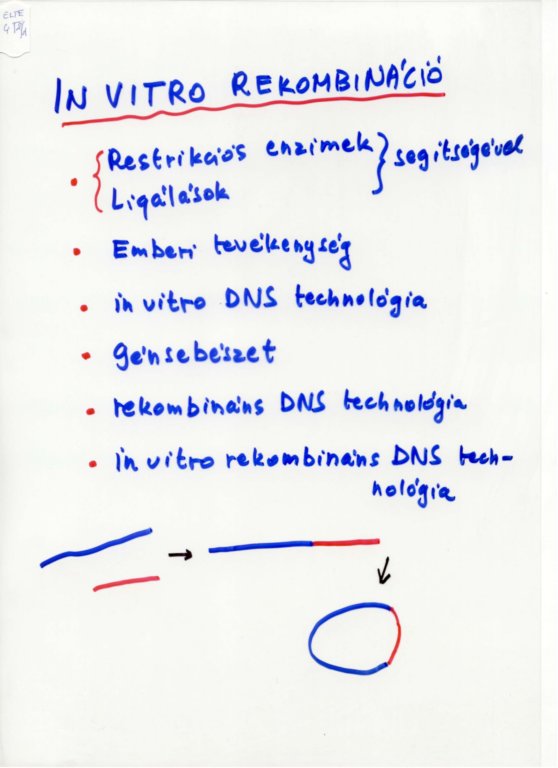 ELTE
IN VITRO REKOMBINÁCIÓ
• { Restrikciós enzimek } segitségével
Ligálások
• Emberi tevékenység
• in vitro DNS technológia
• Génsebészet
• rekombináns DNS technológia
• in vitro rekombináns DNS tech-
nológia